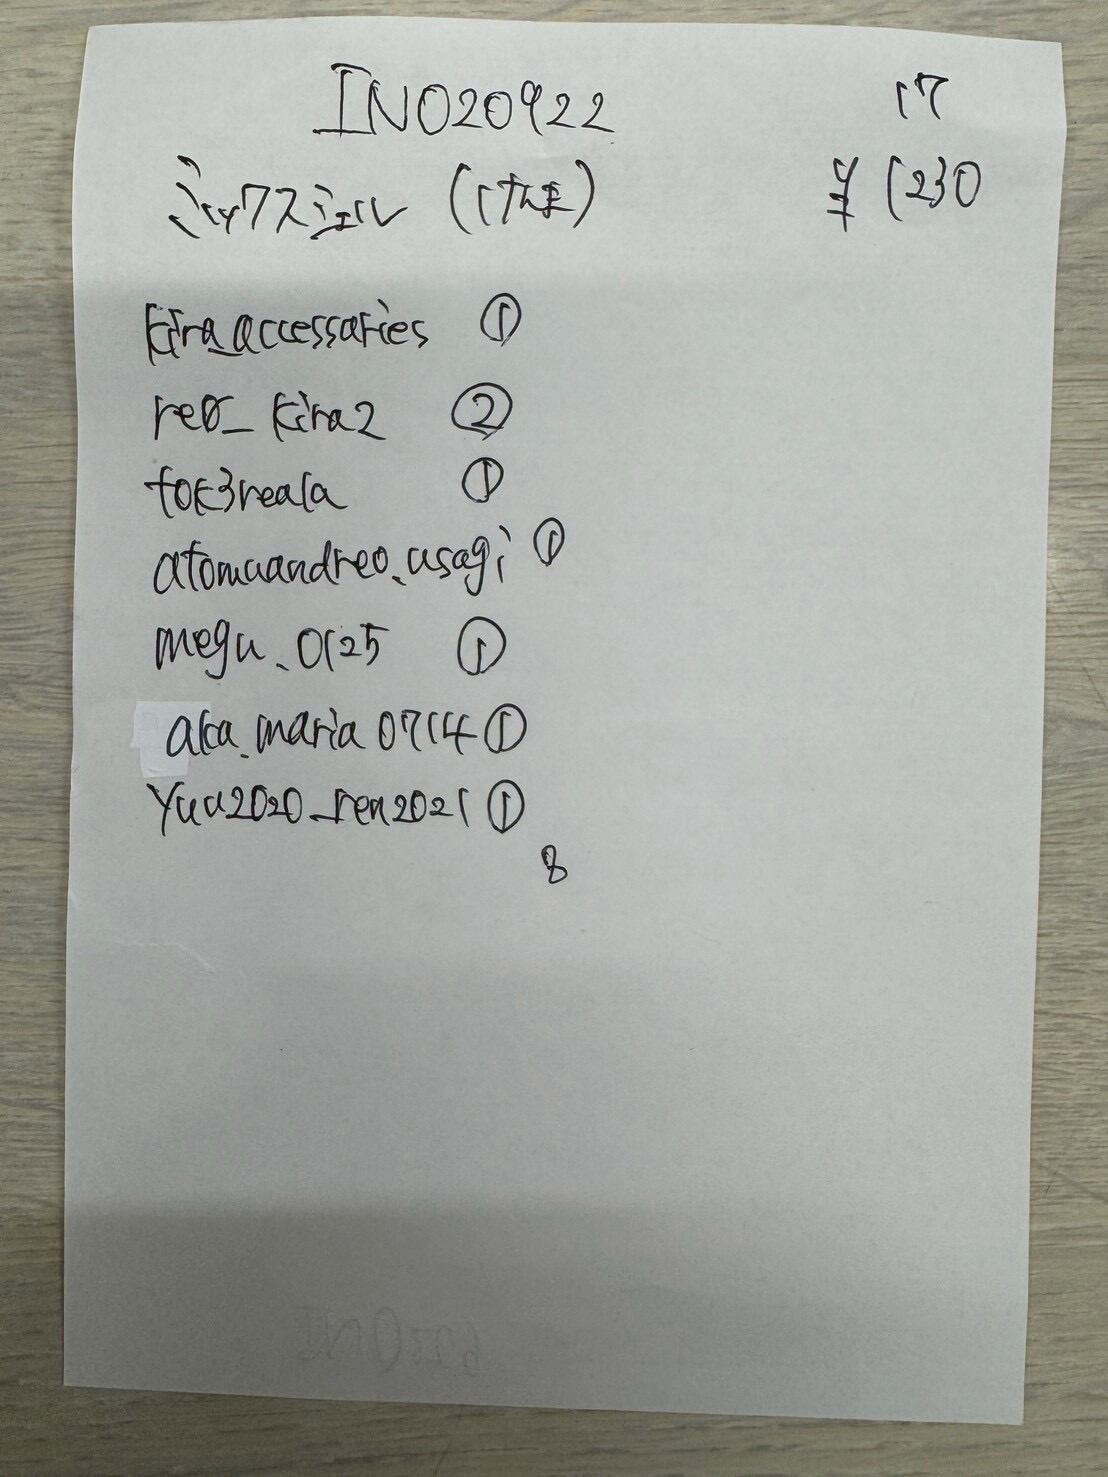 INO20922 17
ミックスシェル (1けんま) ¥1230
kira_accessaries ①
reo_kira2 ②
tok3reala ①
atomuandreo_usagi ①
megu_0125 ①
aka_maria0714 ①
yuu2020_ren2021 ①
8